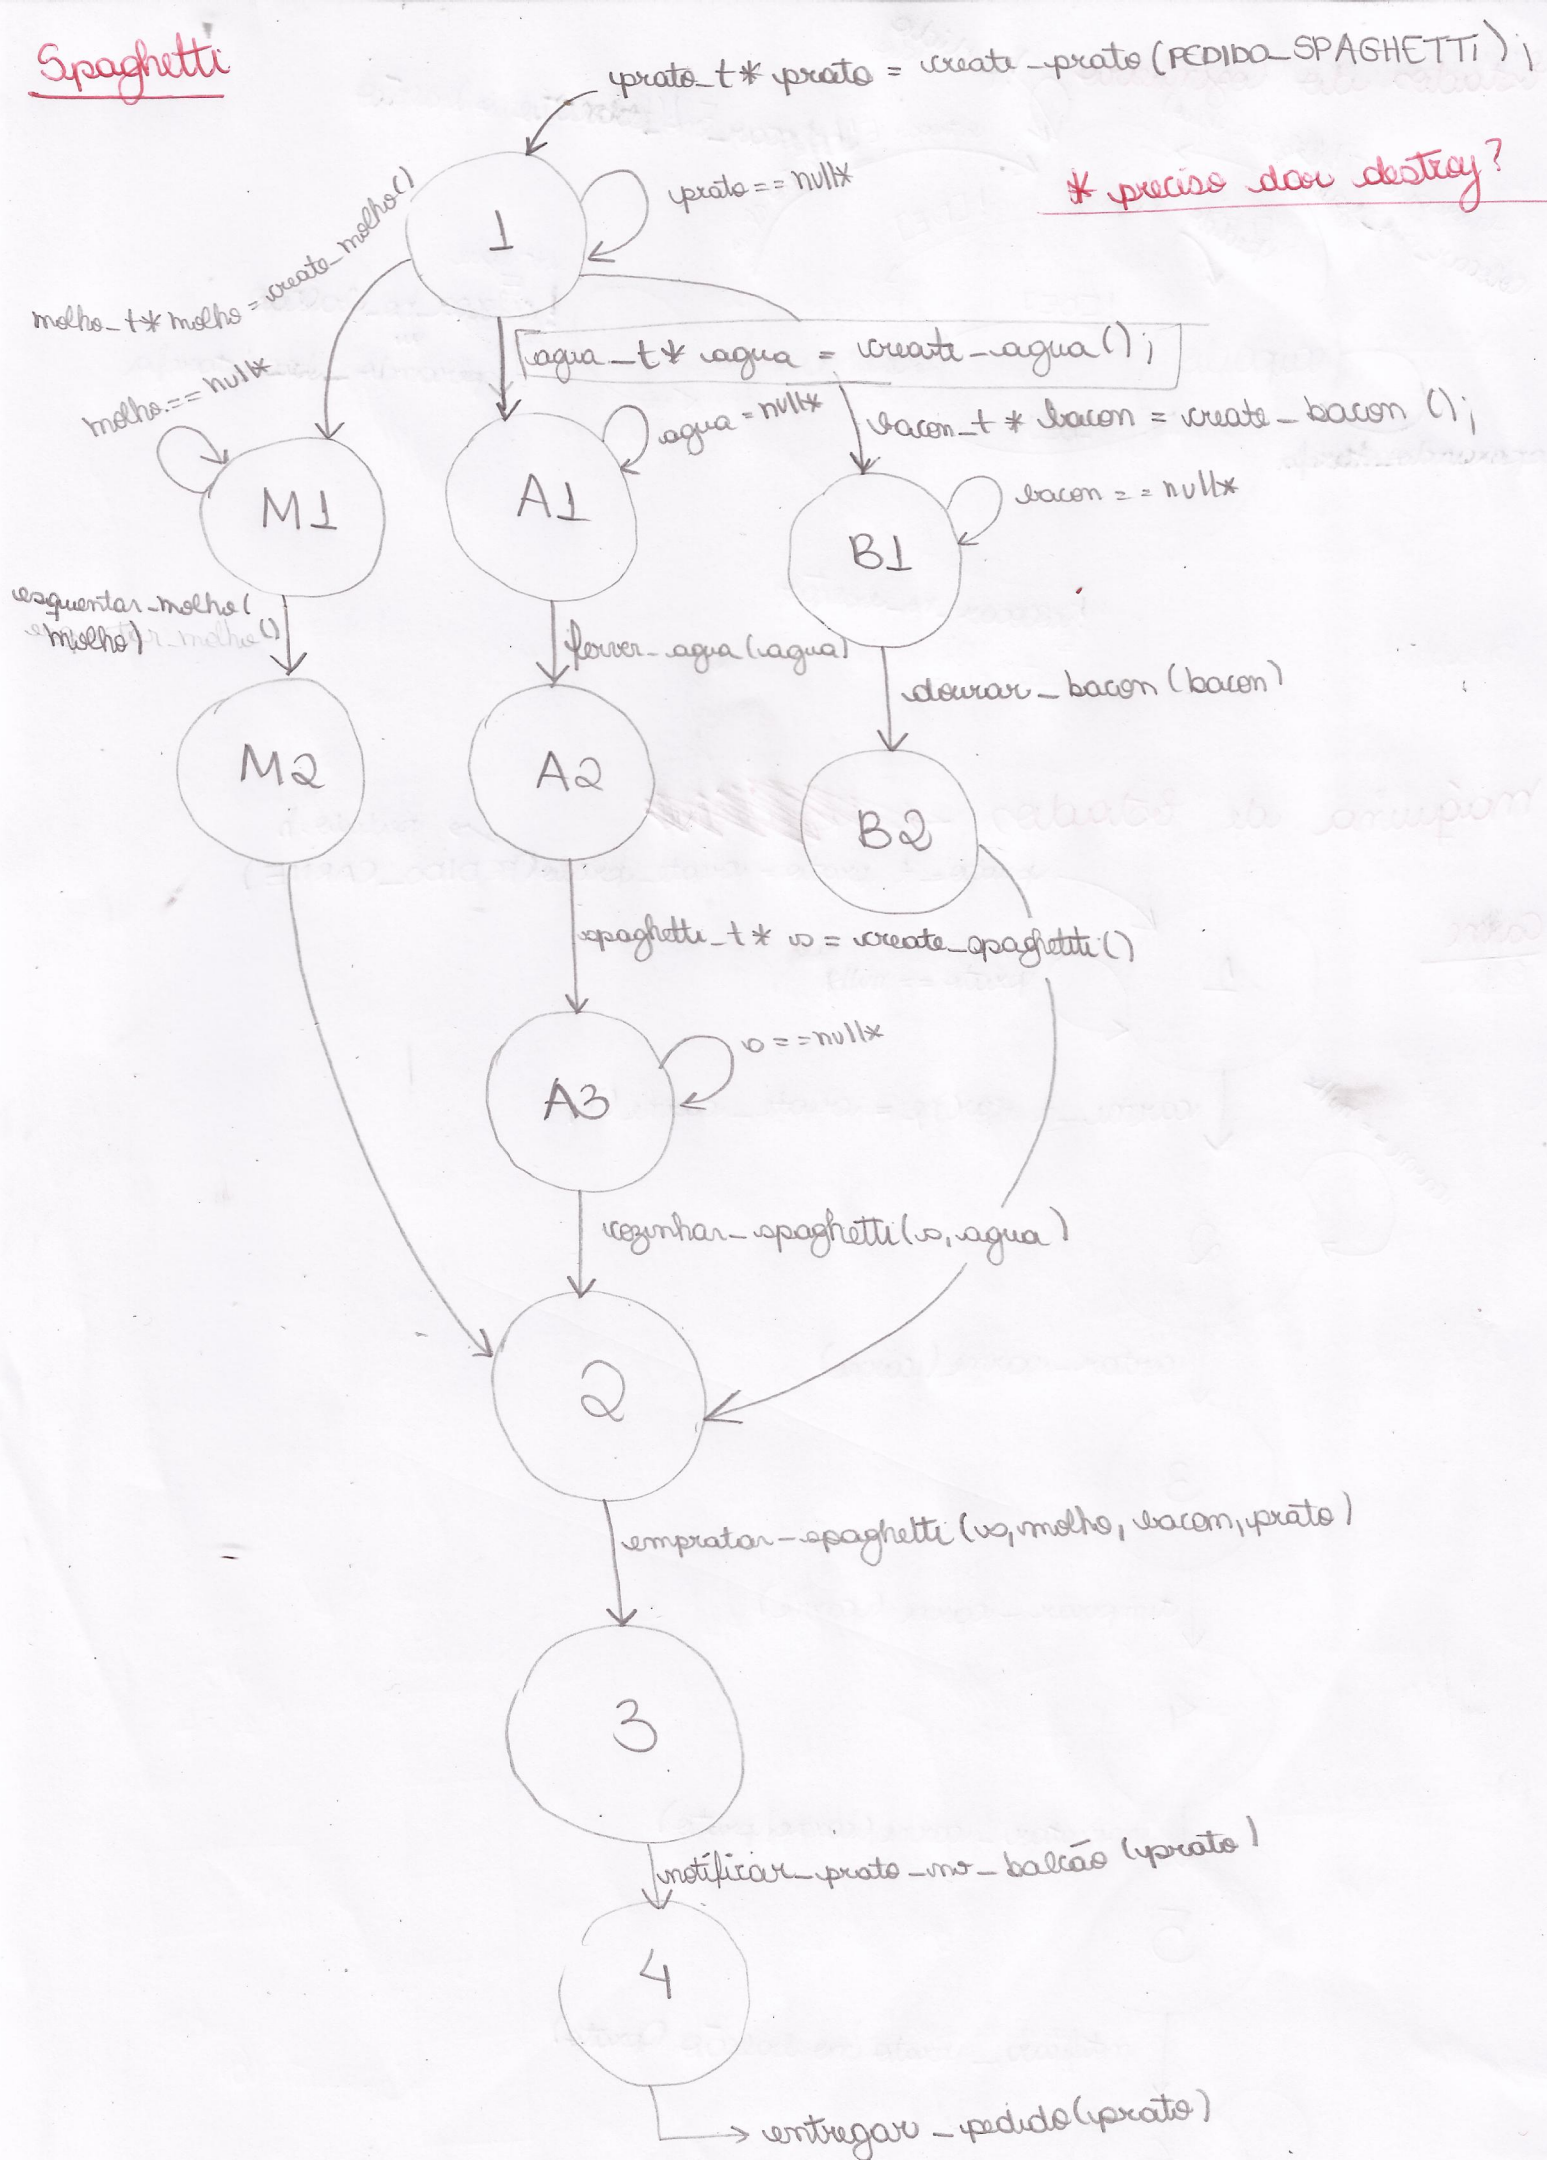 Spaghetti
prato_t* prato = create_prato(PEDIDO_SPAGHETTi);
* preciso dar destroy?
prato == null*
1
molho_t* molho = create_molho()
agua_t* agua = create_agua();
bacon_t* bacon = create_bacon ();
molho == null*
agua = null*
bacon == null*
M1
A1
B1
esquentar_molho(
molho)
ferver_agua(agua)
dourar_bacon(bacon)
M2
A2
B2
spaghetti_t* s = create_spaghetti()
s == null*
A3
cozinhar_spaghetti(s, agua)
2
empratar_spaghetti(s, molho, bacon, prato)
3
notificar_prato_no_balcão (prato)
4
entregar_pedido(prato)